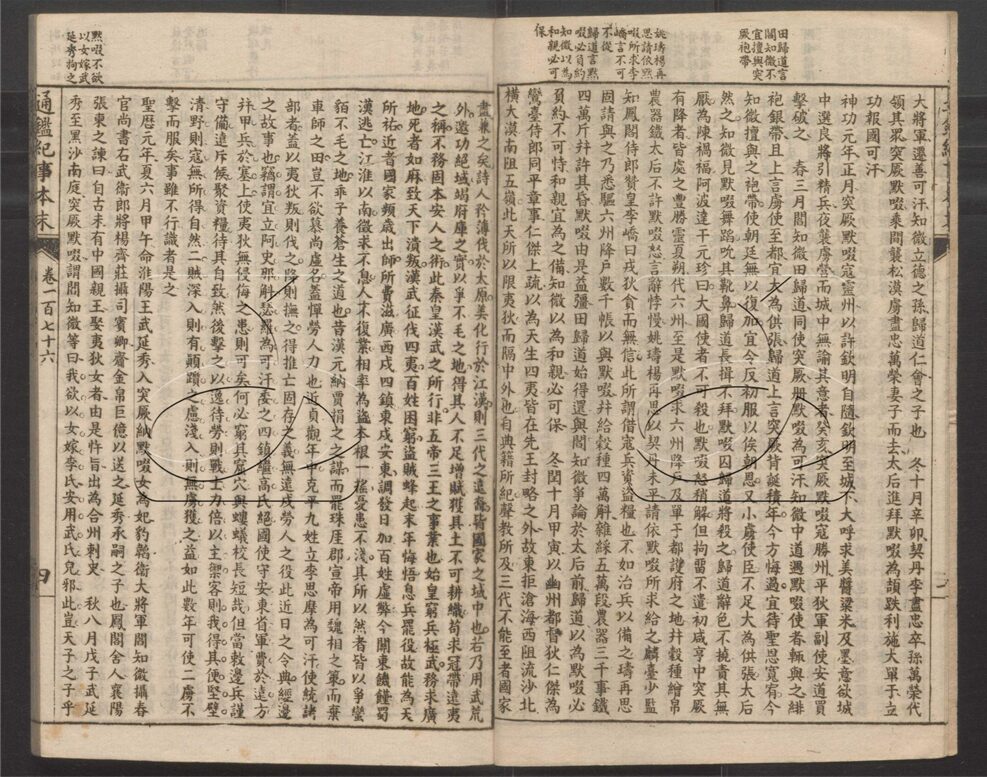 田歸道言
閻知微不
宜擅與突
厥袍帶
姚璹楊再
思請依默
啜所求李
嶠言不可
不從
歸道言默
啜必負約
知微以為
和親必可
保
大將軍遷善可汗知微立德之孫歸道仁會之子也　冬十月辛卯契丹李盡忠卒孫萬榮代
領其眾突厥默啜乘間襲松漠虜盡忠萬榮妻子而去太后進拜默啜為頡跌利施大單于立
功報國可汗
神功元年正月突厥默啜寇靈州以許欽明自隨欽明至城下大呼求美醬粱米及墨意欲城
中選良將引精兵夜襲虜營而城中無諭其意者癸亥突厥默啜寇勝州平狄軍副使安道買
擊破之　春三月閻知微田歸道同使突厥册默啜為可汗知微中道遇默啜使者輒與之緋
袍銀帶且上言虜使至都宜大為供張歸道上言突厥背誕積年今方悔過宜待聖恩寬宥今
知微擅與之袍帶使朝廷無以復加宜令反初服以俟朝恩又小虜使臣不足大為供張太后
然之知微見默啜舞蹈吮其靴鼻歸道長揖不拜默啜囚歸道將殺之歸道辭色不撓責其無
厭為陳禍福阿波達干元珍曰大國使者不可殺也默啜怒稍解但拘留不遣初咸亨中突厥
有降者皆處之豐勝靈夏朔代六州至是默啜求六州降戶及單于都護府之地幷穀種繒帛
農器鐵太后不許默啜怒言辭悖慢姚璹楊再思以契丹未平請依默啜所求給之麟臺少監
知鳳閣侍郎贊皇李嶠曰戎狄貪而無信此所謂借寇兵資盜糧也不如治兵以備之璹再思
固請與之乃悉驅六州降戶數千帳以與默啜幷給穀種四萬斛雜綵五萬段農器三千事鐵
四萬斤幷許其昏默啜由是益彊田歸道始得還與閻知微爭論於太后前歸道以為默啜必
負約不可恃和親宜為之備知微以為和親必可保　冬閏十月甲寅以幽州都督狄仁傑為
鸞臺侍郎同平章事仁傑上疏以為天生四夷皆在先王封略之外故東拒滄海西阻流沙北
橫大漠南阻五嶺此天所以限夷狄而隔中外也自典籍所紀聲教所及三代不能至者國家
盡兼之矣詩人矜薄伐於太原美化行於江漢則三代之遠裔皆國家之域中也若乃用武荒
外邀功絕域竭府庫之實以爭不毛之地得其人不足增賦獲其土不可耕織苟求冠帶遠夷
之稱不務固本安人之術此秦皇漢武之所行非五帝三王之事業也始皇窮兵極武務求廣
地死者如麻致天下潰叛漢武征伐四夷百姓困窮盜賊蜂起末年悔悟息兵罷役故能為天
所祐近者國家頻歲出師所費滋廣西戍四鎮東戍安東調發日加百姓虛弊今關東饑饉蜀
漢逃亡江淮以南徵求不息人不復業相率為盜本根一搖憂患不淺其所以然者皆以爭蠻
貊不毛之地乖子養蒼生之道也昔漢元納賈捐之之謀而罷珠厓郡宣帝用魏相之策而棄
車師之田豈不欲慕尚虛名蓋憚勞人力也近貞觀年中克平九姓立李思摩為可汗使統諸
部者蓋以夷狄叛則伐之降則撫之得推亡固存之義無遠戍勞人之役此近日之令典經邊
之故事也竊謂宜立阿史那斛瑟羅為可汗委之四鎮繼高氏絕國使守安東省軍費於遠方
幷甲兵於塞上使夷狄無侵侮之患則可矣何必窮其窟穴與螻蟻校長短哉但當敕邊兵謹
守備遠斥候聚資糧待其自致然後擊之以逸待勞則戰士力倍以主禦客則我得其便堅壁
清野則寇無所得自然二賊深入則有顛躓之慮淺入則無虜獲之益如此數年可使二虜不
擊而服矣事雖不行識者是之
聖曆元年夏六月甲午命淮陽王武延秀入突厥納默啜女為妃豹韜衛大將軍閻知微攝春
官尚書右武衛郎將楊齊莊攝司賓卿齎金帛巨億以送之延秀承嗣之子也鳳閣舍人襄陽
張柬之諫曰自古未有中國親王娶夷狄女者由是忤旨出為合州刺史　秋八月戊子武延
秀至黑沙南庭突厥默啜謂閻知微等曰我欲以女嫁李氏安用武氏兒邪此豈天子之子乎
默啜不欲
以女嫁武
延秀拘之
通鑑紀事本末
卷一百七十六
四